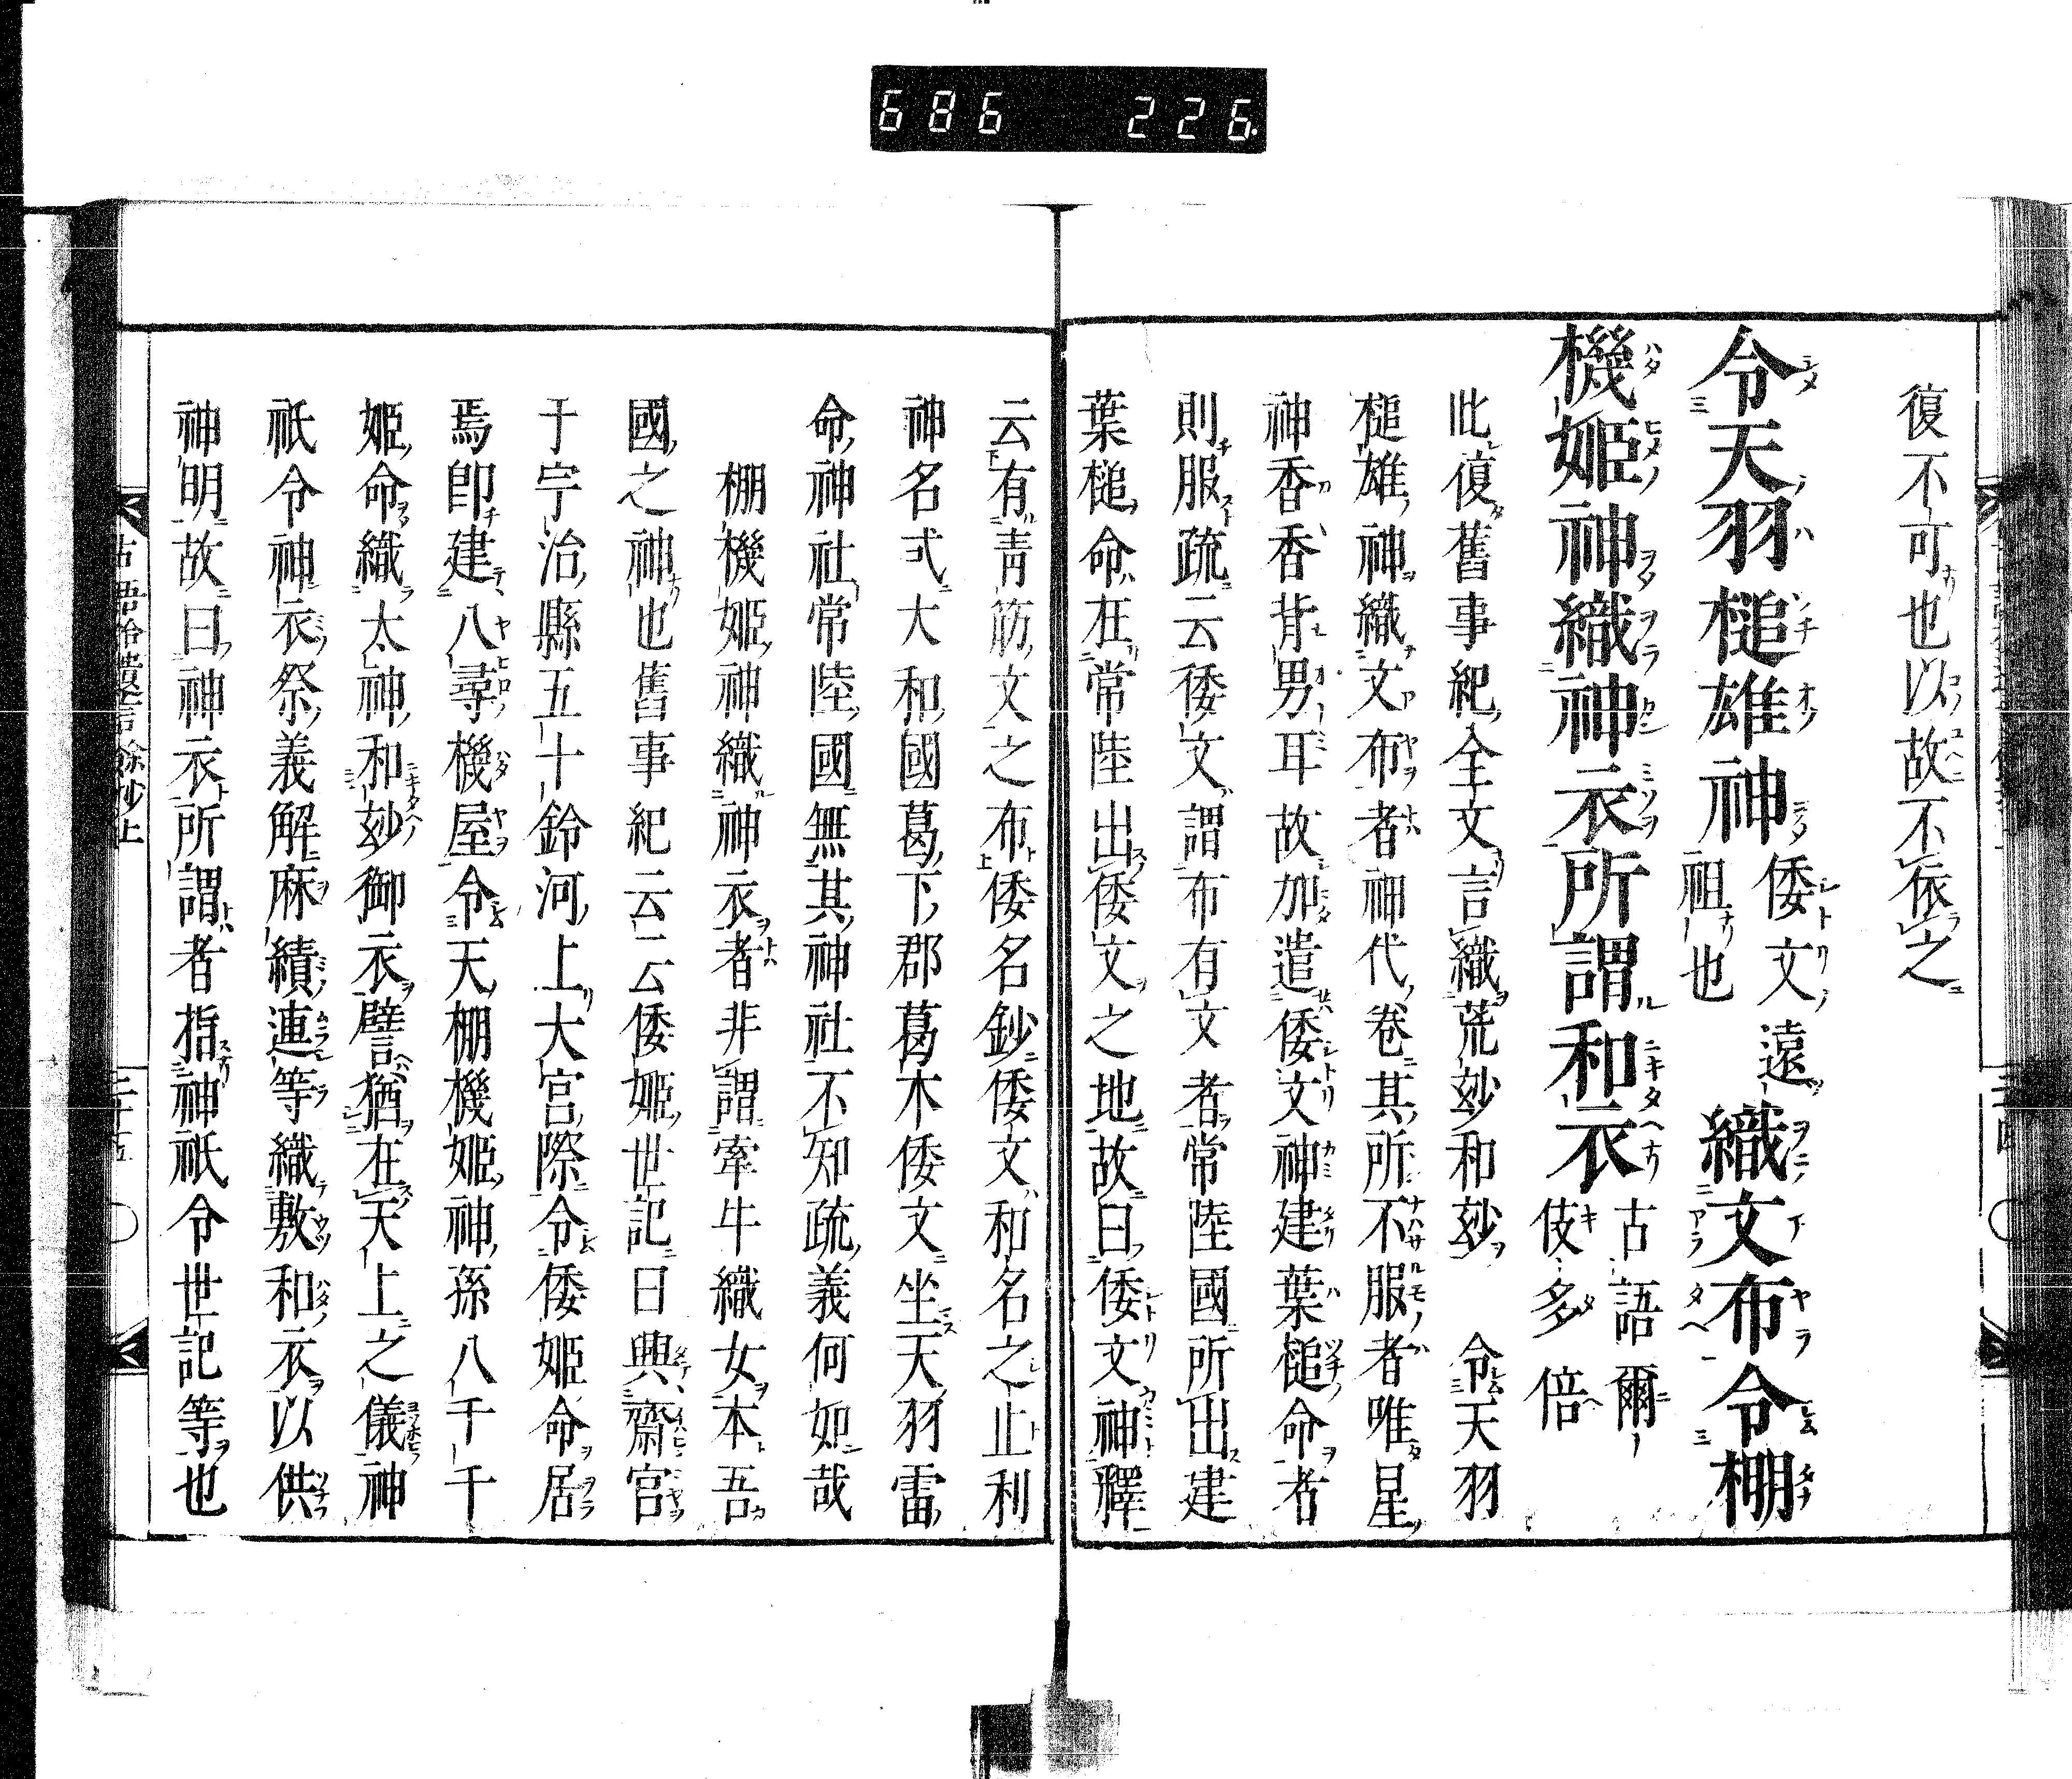 686 226
復不可也以故不依之
令天羽槌雄神倭文遠祖也織文布令棚
機姬神織神衣所謂和衣古語爾伎多倍
此復舊事紀全文言織荒玅和玅 令天羽
槌雄神織文布者神代卷其所不服者唯星
神香香背男耳故加遣倭文神建葉槌命者
則服疏云倭文謂布有文者常陸國所出建
葉槌命在常陸出倭文之地故曰倭文神釋
云有青筋文之布倭名鈔倭文和名之止利
神名式大和國葛下郡葛木倭文坐天羽雷
命神社常陸國無其神社不知疏義何如哉
棚機姬神織神衣者非謂牽牛織女本吾
國之神也舊事紀云云倭姬世記曰興齋宮
于宇治縣五十鈴河上大宮際令倭姬命居
焉卽建八尋機屋令天棚機姬神孫八千千
姬命織太神和玅御衣譬猶在天上之儀神
祇令神衣祭義解麻績連等織敷和衣以供
神明故曰神衣所謂者指神祇令世記等也
古語拾遺言餘抄上